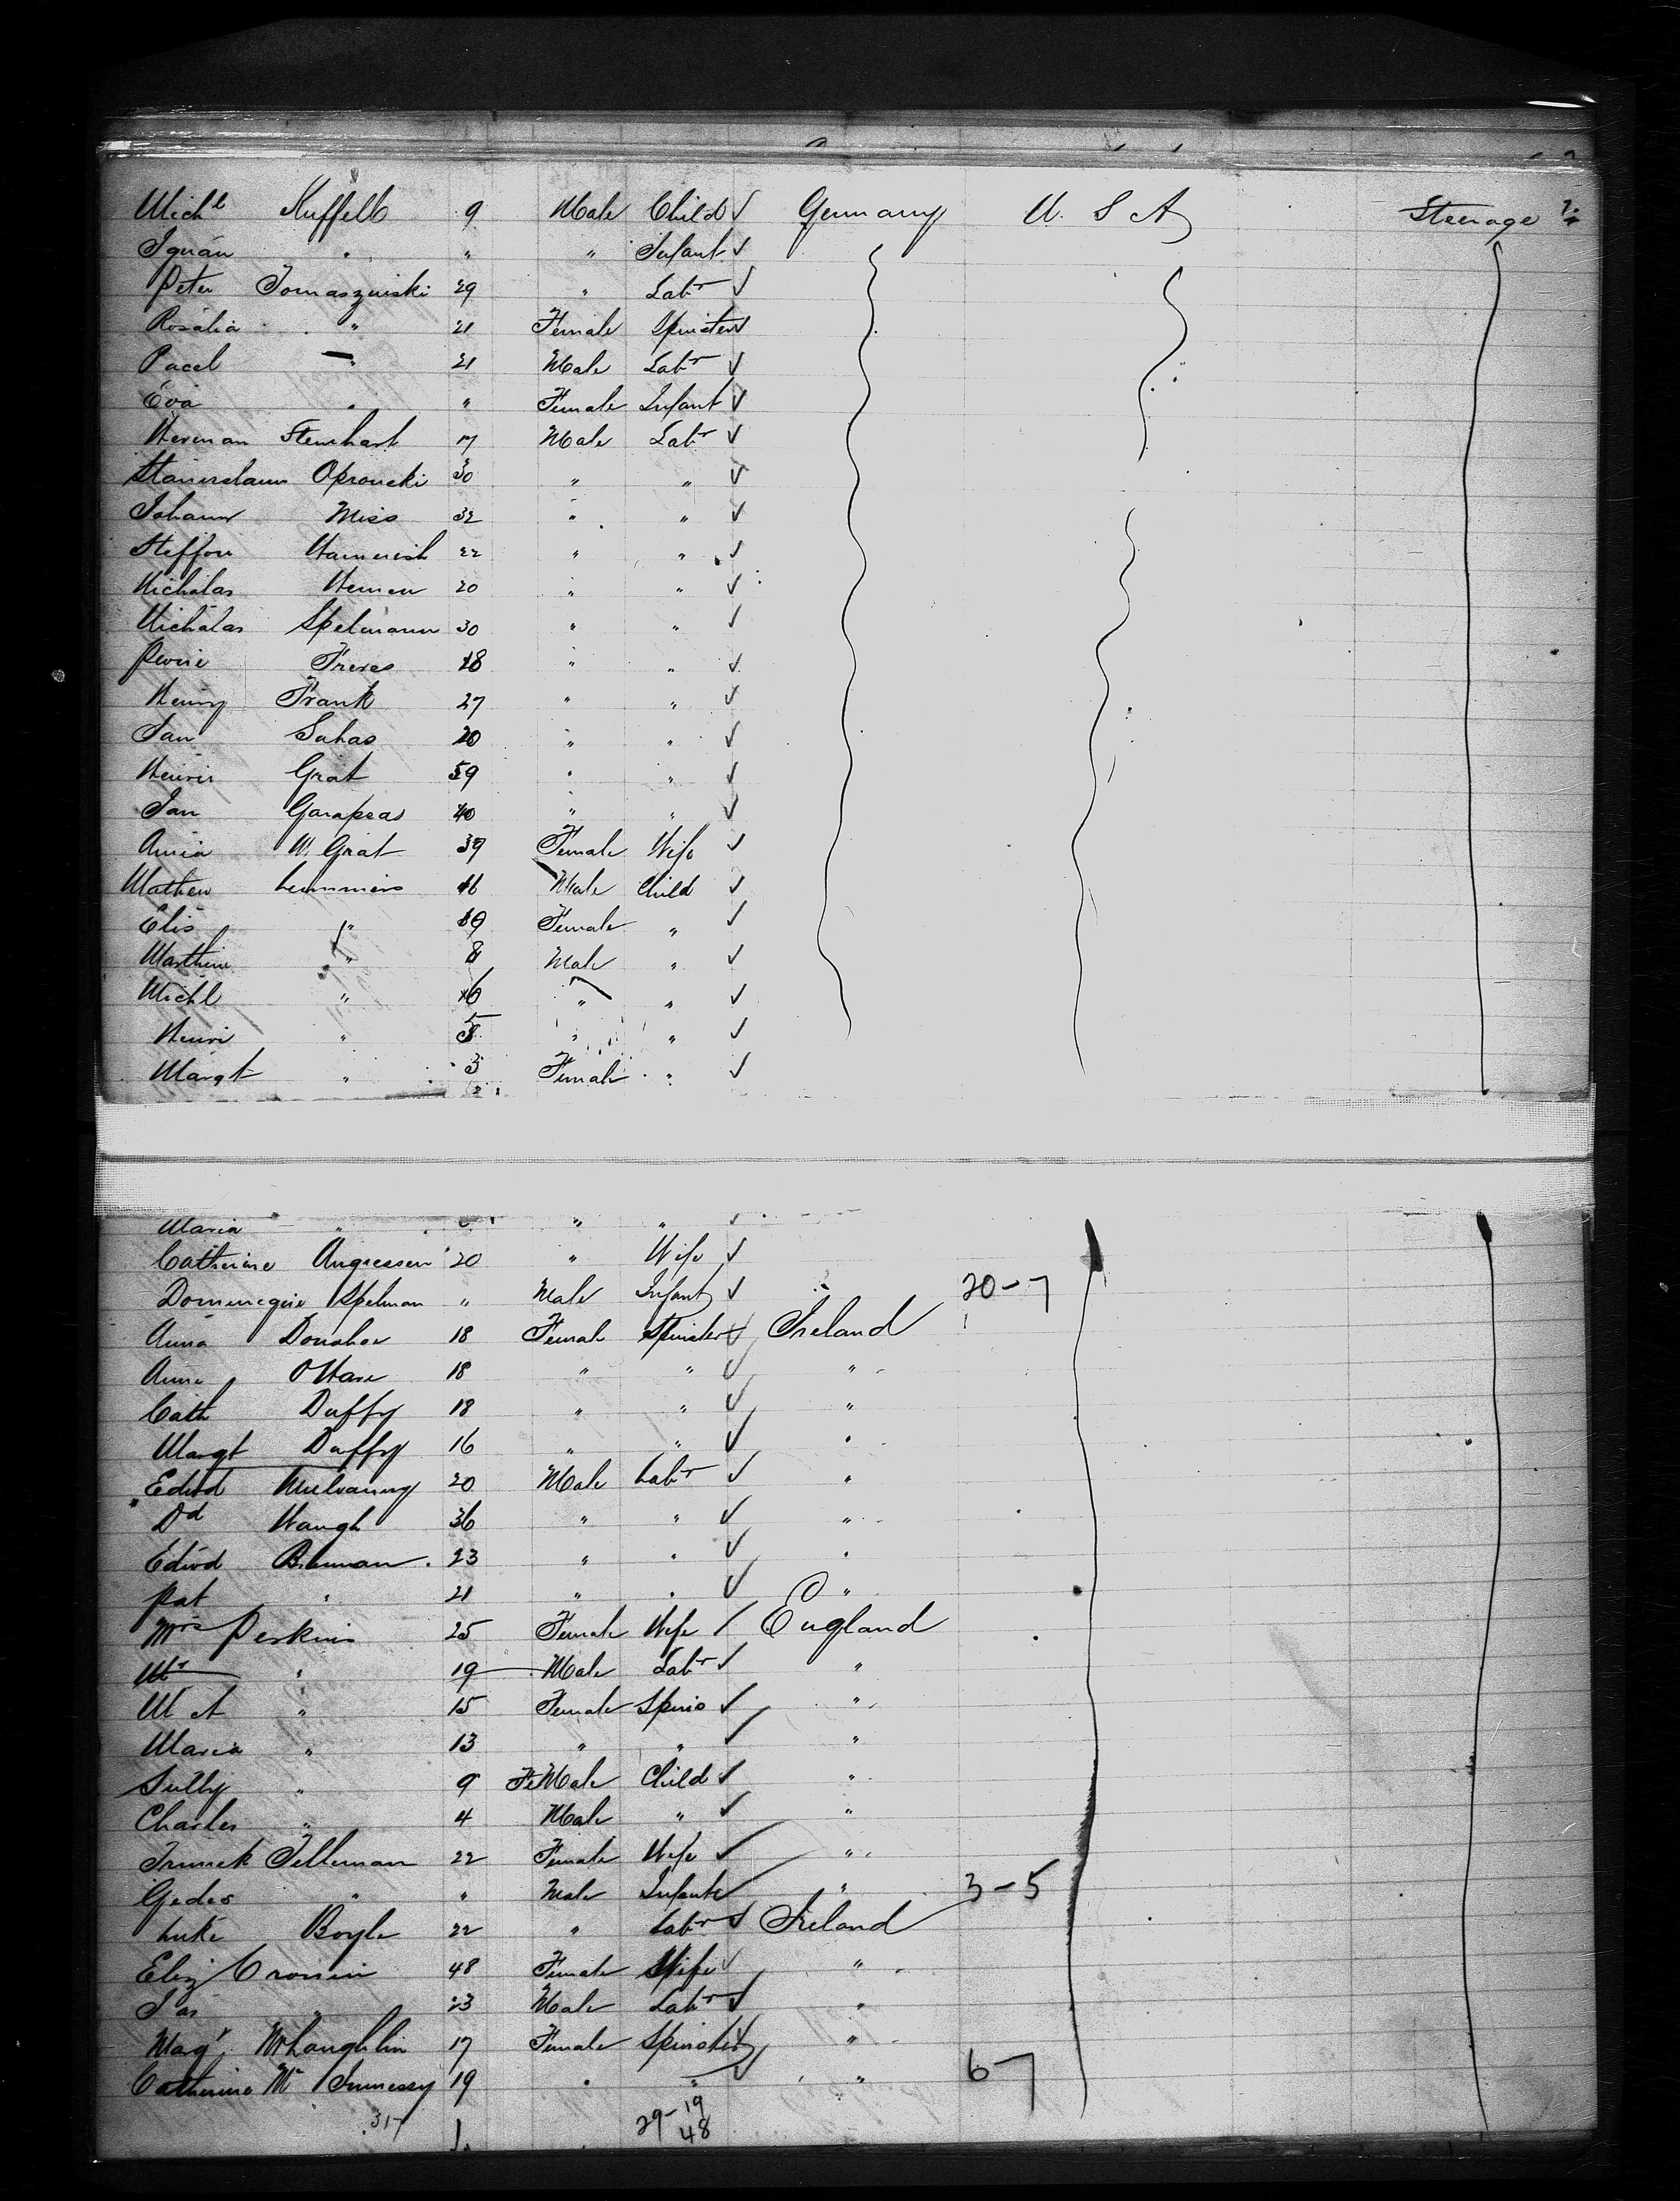 Michl Kuffell 9 Male Child ✓ Germany U. S A Steerage
Ignán " " " Infant ✓
Peter Tomaszuiski 29 " Labr ✓
Rosalia " 21 Female Spinster ✓
Pacel " 21 Male Labr ✓
Eva " " Female Infant ✓
Herman Steinhart 17 Male Labr ✓
Stanirslaus Oprouski 30 " " ✓
Johann Miss 32 " " ✓
Steffon Hamerish 22 " " ✓
Nicholas Hemen 20 " " ✓
Nicholas Spelmann 30 " " ✓
Pierrie Freres 28 " " ✓
Henry Frank 27 " " ✓
Jan Sahas 20 " " ✓
Henri Grat 59 " " ✓
Jan Garapeas 40 " " ✓
Annia W. Grat 39 Female Wife ✓
Mathew Lemmiers Male Child ✓
Elis " Female " ✓
Marthin " 8 Male " ✓
Michl " 6 " " ✓
Henri " 5 " " ✓
Margt " 3 Female " ✓
Maria " " " ✓
Catherine Angressen 20 " Wife ✓
Domineque Spelman " Male Infant ✓ " 20-7
Anna Donohoe 18 Female Spinster ✓ Ireland
Anne O'Hare 18 " " ✓ "
Cath Duffy 18 " " ✓ "
Margt Duffy 16 " " ✓ "
Edwd Mulvanny 20 Male Labr ✓ "
Dd Waugh 36 " " ✓ "
Edwd Brennan 23 " " ✓ "
Pat " 21 " " ✓ "
Mrs Perkins 25 Female Wife ✓ England
Mr " 19 Male Labr ✓ "
M A " 15 Female Spins ✓ "
Maria " 13 " " ✓ "
Sully " 9 FeMale Child ✓ "
Charles " 4 Male " ✓ "
Tilleman 22 Female Wife ✓ "
Gedes " " Male Infant ✓ " 3-5
Luke Boyle 22 " Labr ✓ Ireland
Eliz Cronin 48 Female Wife ✓ "
Jas " 23 Male Labr ✓ "
Margt McLaughlin 17 Female Spinster ✓ "
Catherine Mc Innessy 19 " " ✓ " 6-7
317 29-19
48